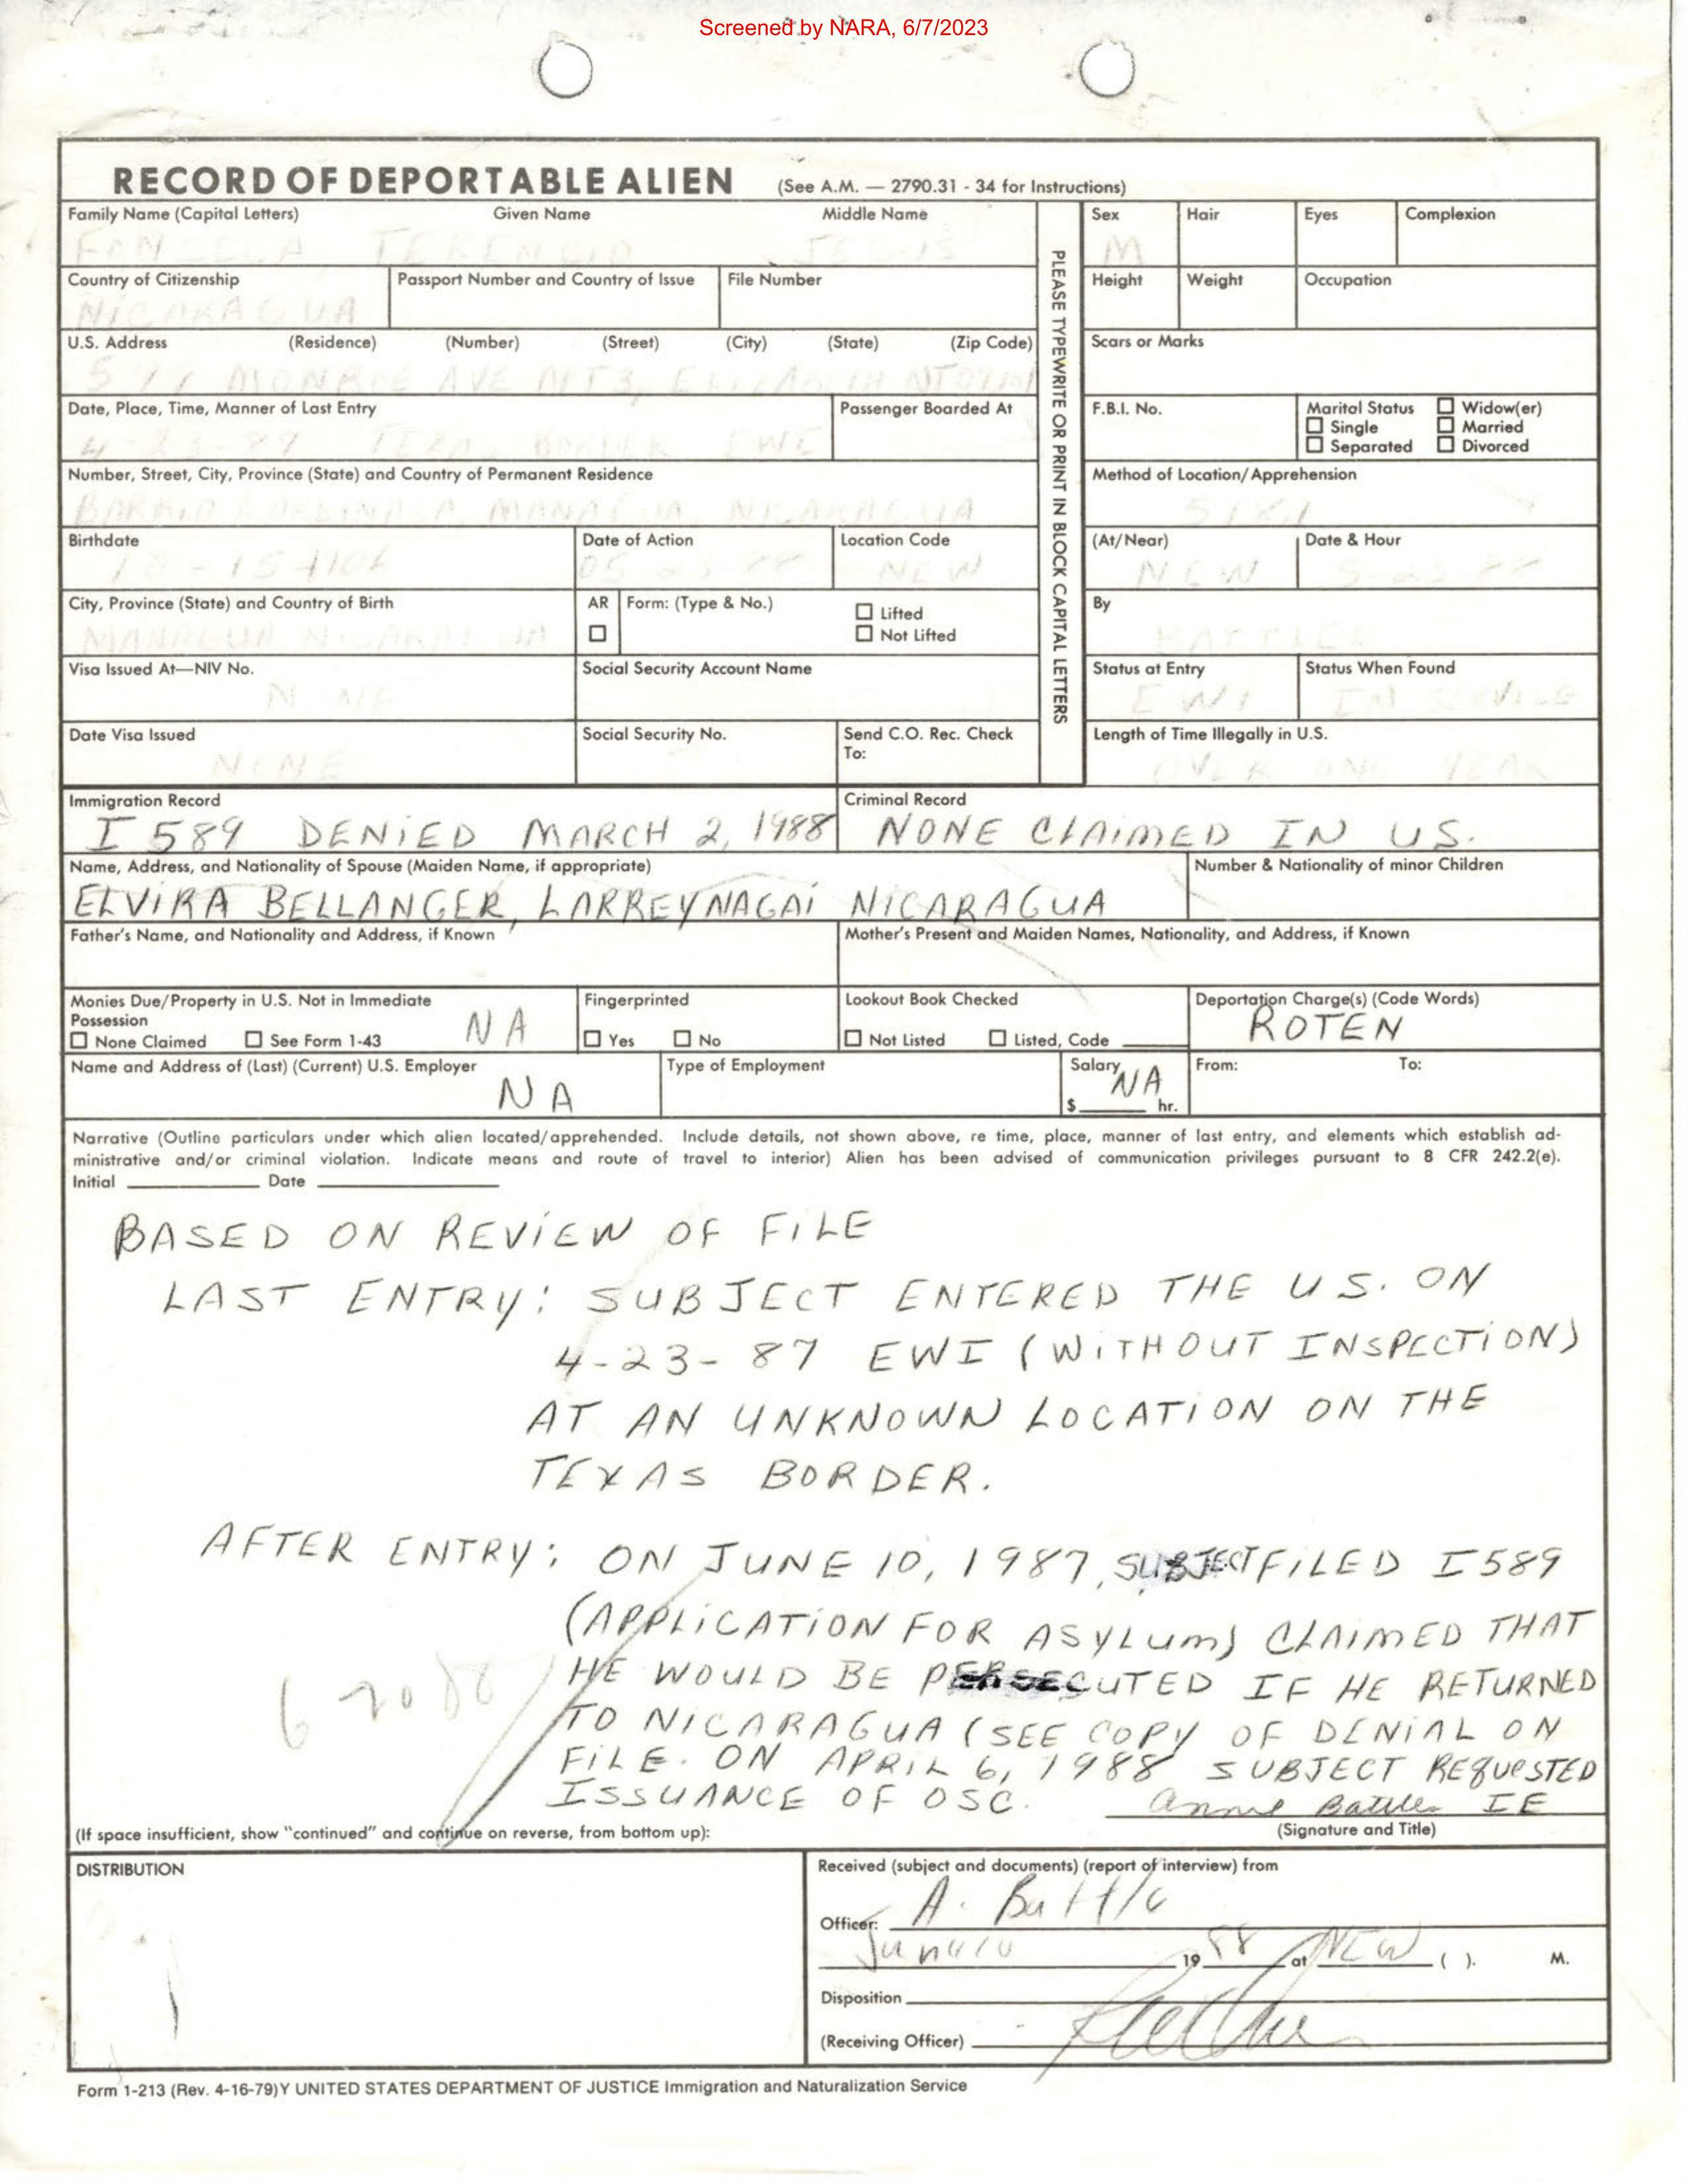 Screened by NARA, 6/7/2023
RECORD OF DEPORTABLE ALIEN (See A.M. — 2790.31 - 34 for Instructions)
Family Name (Capital Letters) Given Name Middle Name
Sex Hair Eyes Complexion
M
Country of Citizenship Passport Number and Country of Issue File Number
Height Weight Occupation
NICARAGUA
U.S. Address (Residence) (Number) (Street) (City) (State) (Zip Code)
Scars or Marks
MONROE AVE
PLEASE TYPEWRITE OR PRINT IN BLOCK CAPITAL LETTERS
Date, Place, Time, Manner of Last Entry Passenger Boarded At
F.B.I. No. Marital Status Widow(er)
Single Married
Separated Divorced
Number, Street, City, Province (State) and Country of Permanent Residence
Method of Location/Apprehension
MANAGUA, NICARAGUA
Birthdate Date of Action Location Code
(At/Near) Date & Hour
NEW
NEW
City, Province (State) and Country of Birth AR Form: (Type & No.) Lifted
Not Lifted
By
MANAGUA NICARAGUA
BATTLE
Visa Issued At—NIV No. Social Security Account Name
Status at Entry Status When Found
NONE
EWI
Date Visa Issued Social Security No. Send C.O. Rec. Check
To:
Length of Time Illegally in U.S.
NONE
OVER ONE YEAR
Immigration Record Criminal Record
I 589 DENIED MARCH 2, 1988 NONE CLAIMED IN US.
Name, Address, and Nationality of Spouse (Maiden Name, if appropriate) Number & Nationality of minor Children
ELVIRA BELLANGER, LARREYNAGAI NICARAGUA
Father's Name, and Nationality and Address, if Known Mother's Present and Maiden Names, Nationality, and Address, if Known
Monies Due/Property in U.S. Not in Immediate
Possession
None Claimed See Form 1-43 NA
Fingerprinted
Yes No
Lookout Book Checked
Not Listed Listed, Code
Deportation Charge(s) (Code Words)
ROTEN
Name and Address of (Last) (Current) U.S. Employer Type of Employment Salary From: To:
NA
NA
$ hr.
Narrative (Outline particulars under which alien located/apprehended. Include details, not shown above, re time, place, manner of last entry, and elements which establish ad-
ministrative and/or criminal violation. Indicate means and route of travel to interior) Alien has been advised of communication privileges pursuant to 8 CFR 242.2(e).
Initial Date
BASED ON REVIEW OF FILE
LAST ENTRY: SUBJECT ENTERED THE U.S. ON
4-23-87 EWI (WITHOUT INSPECTION)
AT AN UNKNOWN LOCATION ON THE
TEXAS BORDER.
AFTER ENTRY: ON JUNE 10, 1987, SUBJECT FILED I589
(APPLICATION FOR ASYLUM) CLAIMED THAT
HE WOULD BE PERSECUTED IF HE RETURNED
TO NICARAGUA (SEE COPY OF DENIAL ON
FILE. ON APRIL 6, 1988 SUBJECT REQUESTED
ISSUANCE OF OSC.
Annie Battle IE
(If space insufficient, show "continued" and continue on reverse, from bottom up):
(Signature and Title)
DISTRIBUTION
Received (subject and documents) (report of interview) from
Officer: A. Battle
19 88 at NEW ( ). M.
Disposition
(Receiving Officer)
Form 1-213 (Rev. 4-16-79)Y UNITED STATES DEPARTMENT OF JUSTICE Immigration and Naturalization Service